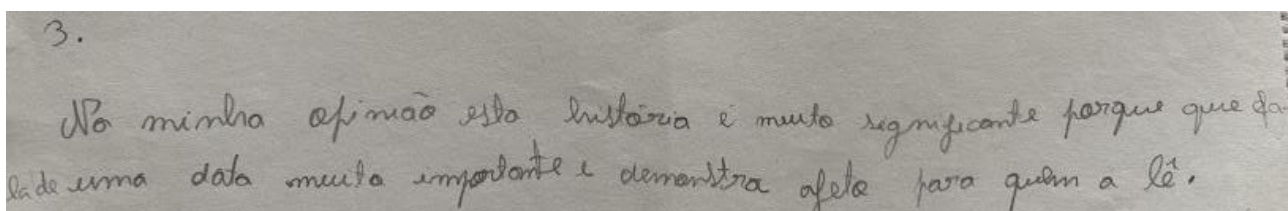 3.
Na minha opinião esta história é muito significante porque que fa-
la de uma data muito importante e demonstra afeto para quem a lê.